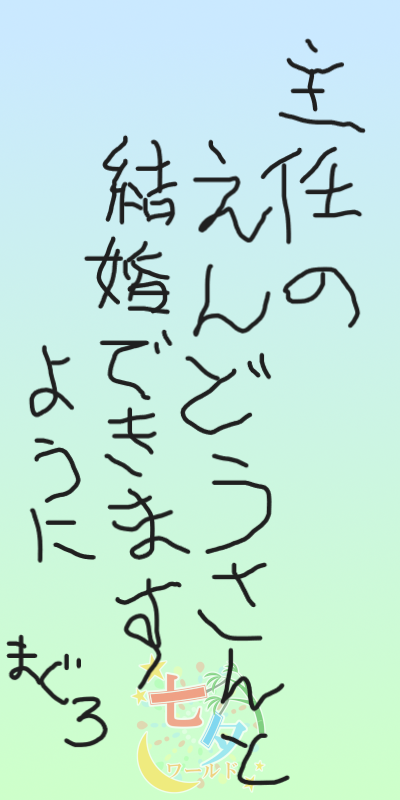 主任の
えんどうさんと
結婚できます
ように
まぐろ
七夕
ワールド